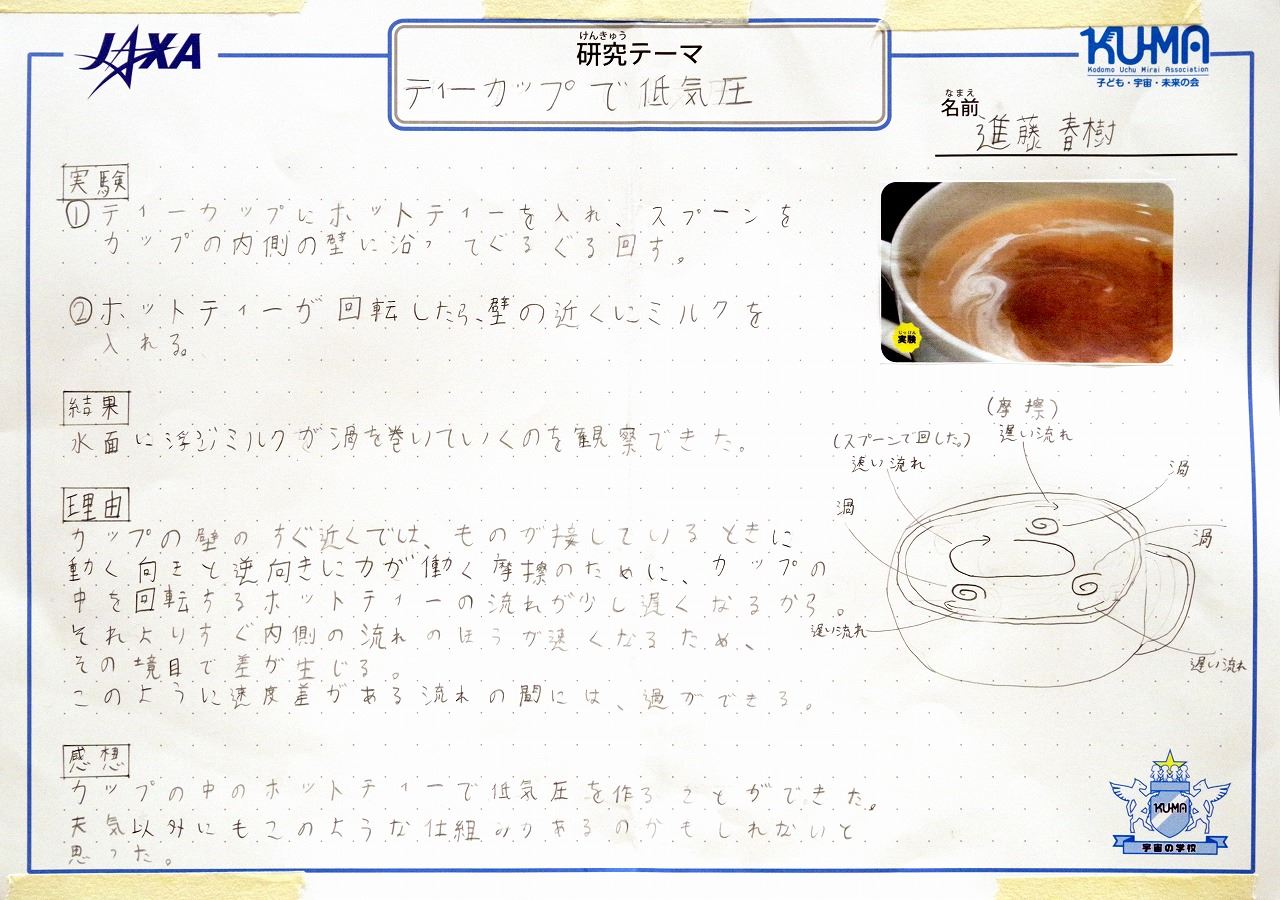 JAXA
けんきゅう
研究テーマ
ティーカップで低気圧
KU-MA
Kodomo Uchu Mirai Association
子ども・宇宙・未来の会
なまえ
名前
進藤 春樹
実験
① ティーカップにホットティーを入れ、スプーンを
カップの内側の壁に沿ってぐるぐる回す。
② ホットティーが回転したら、壁の近くにミルクを
入れる。
じっけん
実験
結果
水面に浮ぶミルクが渦を巻いていくのを観察できた。
理由
カップの壁のすぐ近くでは、ものが接しているときに
動く向きと逆向きに力が働く摩擦のために、カップの
中を回転するホットティーの流れが少し遅くなるから。
それよりすぐ内側の流れのほうが速くなるため、
その境目で差が生じる。
このように速度差がある流れの間には、渦ができる。
(摩擦)
遅い流れ
(スプーンで回した。)
速い流れ
渦
渦
渦
遅い流れ
遅い流れ
感想
カップの中のホットティーで低気圧を作ることができた。
天気以外にもこのような仕組みがあるのかもしれないと
思った。
KU-MA
宇宙の学校